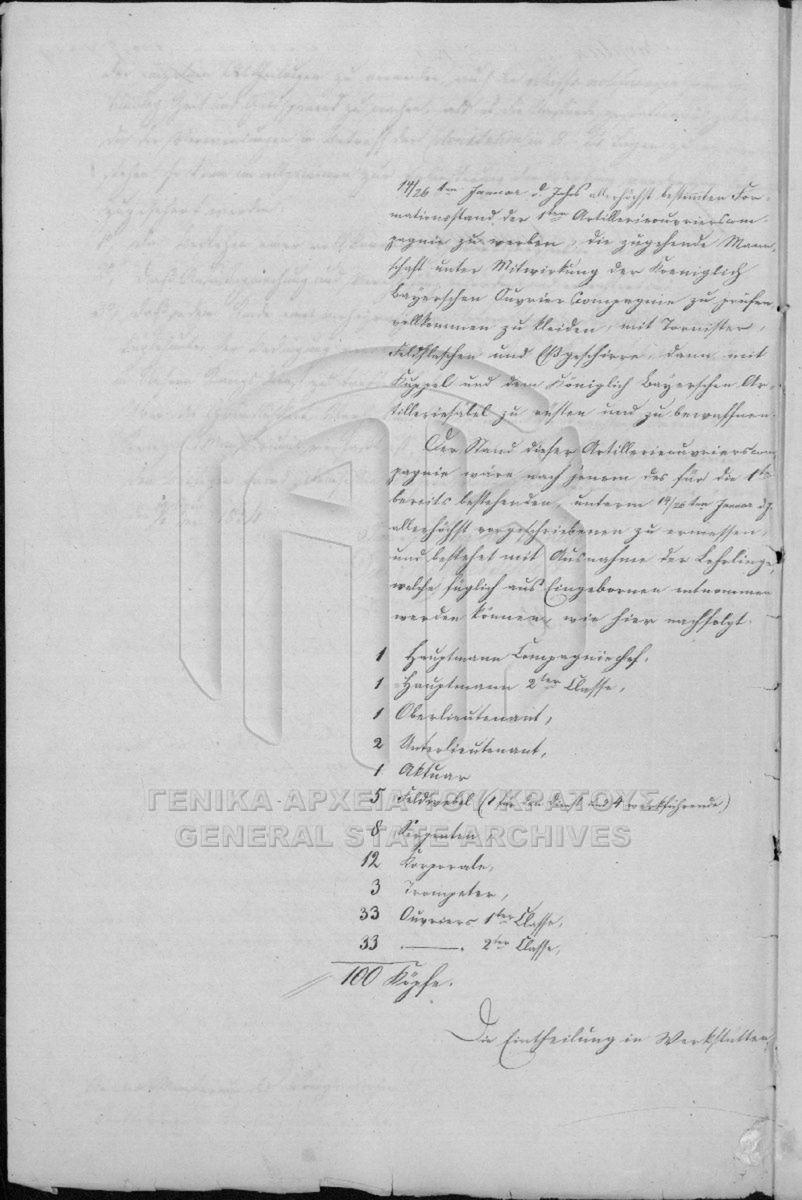 14/26 ten Januar d. Jahrs allerhöchst bestimten For-
mationsstand der 1ten Artillerieouvrierscom-
pagnie zu werben, die zugehende Mann-
schaft unter Mitwirkung der Koeniglich
Bayerschen Ouvrierscompagnie zu prüfen
vollkommen zu kleiden, mit Tornister,
Feldflaschen und Eßgeschirre, dann mit
Kuppel und dem Königlich Bayerschen Ar-
tilleriesäbel zu rüsten und zu bewaffnen.
Der Stand dieser Artillerieouvrierscom-
pagnie wäre nach jenem des für die 1te
bereits bestehenden, unterm 14/26 ten Januar d. J.
allerhöchst vorgeschriebenen zu ermessen,
und bestehet mit Ausnahme der Lehrlinge,
welche füglich aus Eingebornen entnommen
werden können, wie hier nachfolgt.
1 Hauptmann Compagniechef,
1 Hauptmann 2ter Classe,
1 Oberlieutenant,
2 Unterlieutenant,
1 Aktuar
5 Feldwebel (1 für den Dienst und 4 werkführende)
8 Sergenten
12 Korporale,
3 Trompeter,
33 Ouvriers 1ter Classe,
33 ——. 2ter Classe,
100 Köpfe.
Die Eintheilung in Werkstätten
ΓΕΝΙΚΑ ΑΡΧΕΙΑ ΤΟΥ ΚΡΑΤΟΥΣ
GENERAL STATE ARCHIVES